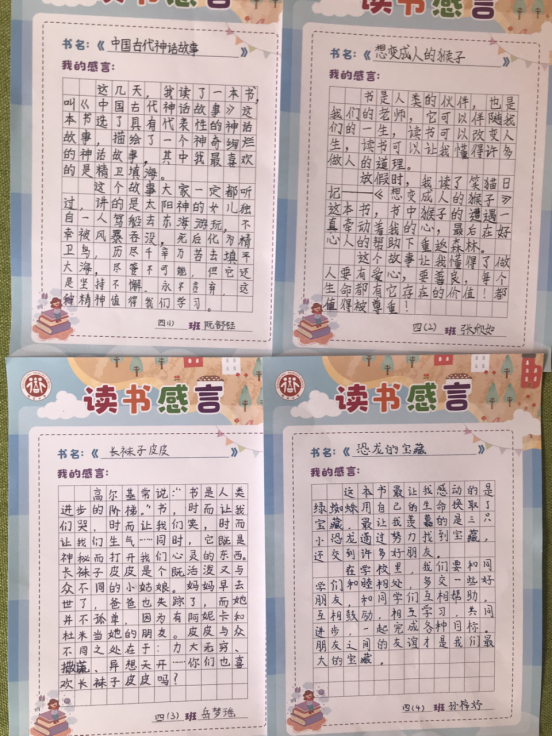 读书感言
书名：《中国古代神话故事》
我的感言：
这几天，我读了一本书，
叫《中国古代神话故事》这
本书选了具有代表性的神话
故事，描绘了一个神奇绚烂
的神话故事，其中我最喜欢
的是精卫填海。
这个故事大家一定都听
过，讲的是太阳神的女儿独
自一人驾船去东海游玩，不
幸被风暴吞没，死后化为精
卫鸟，历尽千辛万苦去填平
大海，尽管不可能，但它还
是坚持不懈、永不言弃，这
种精神值得我们学习。
四(1) 班 阮舒
读书感言
书名：《想变成人的猴子》
我的感言：
书是人类的伙伴，也是
我们的老师，它可以伴随我
们的一生，读书可以改变人
生，读书可以让我懂得许多
做人的道理。
放假时，我读了笑猫日
记——《想变成人的猴子》
这本书，书中猴子的遭遇一
直带动着我的心，最后在好
心人的帮助下重返森林。
这个故事让我懂得了做
人要有爱心，要善良，每个
生命都有它存在的价值！都
值得被尊重！
四(2) 班 张欣
读书感言
书名：《长袜子皮皮》
我的感言：
高尔基常说："书是人类
进步的阶梯。"书，时而让我
们哭，时而让我们笑，时而
让我们生气……同时，它既是
神秘而打开我们心灵的东西。
长袜子皮皮是个既活泼又与
众不同的小姑娘。妈妈早去
世了，爸爸也失踪了，而她
并不孤单，因为有阿妮卡和
杜米当她的朋友。皮皮与众
不同之处在于：力大无穷、
撒谎、异想天开……你们也喜
欢长袜子皮皮吗？
四(3) 班 岳梦瑶
读书感言
书名：《恐龙的宝藏》
我的感言：
这本书最让我感动的是
绿蜘蛛用自己的生命换取了
宝藏，最让我羡慕的是三只
小恐龙通过努力找到宝藏，
还交到许多好朋友。
在学校里，我们要和同
学们和睦相处，多交一些好
朋友，和同学们互相帮助、
互相鼓励，相互学习，共同
进步，一起完成各种目标。
朋友之间的友谊才是我们最
大的宝藏。
四(4) 班 孙梓婷